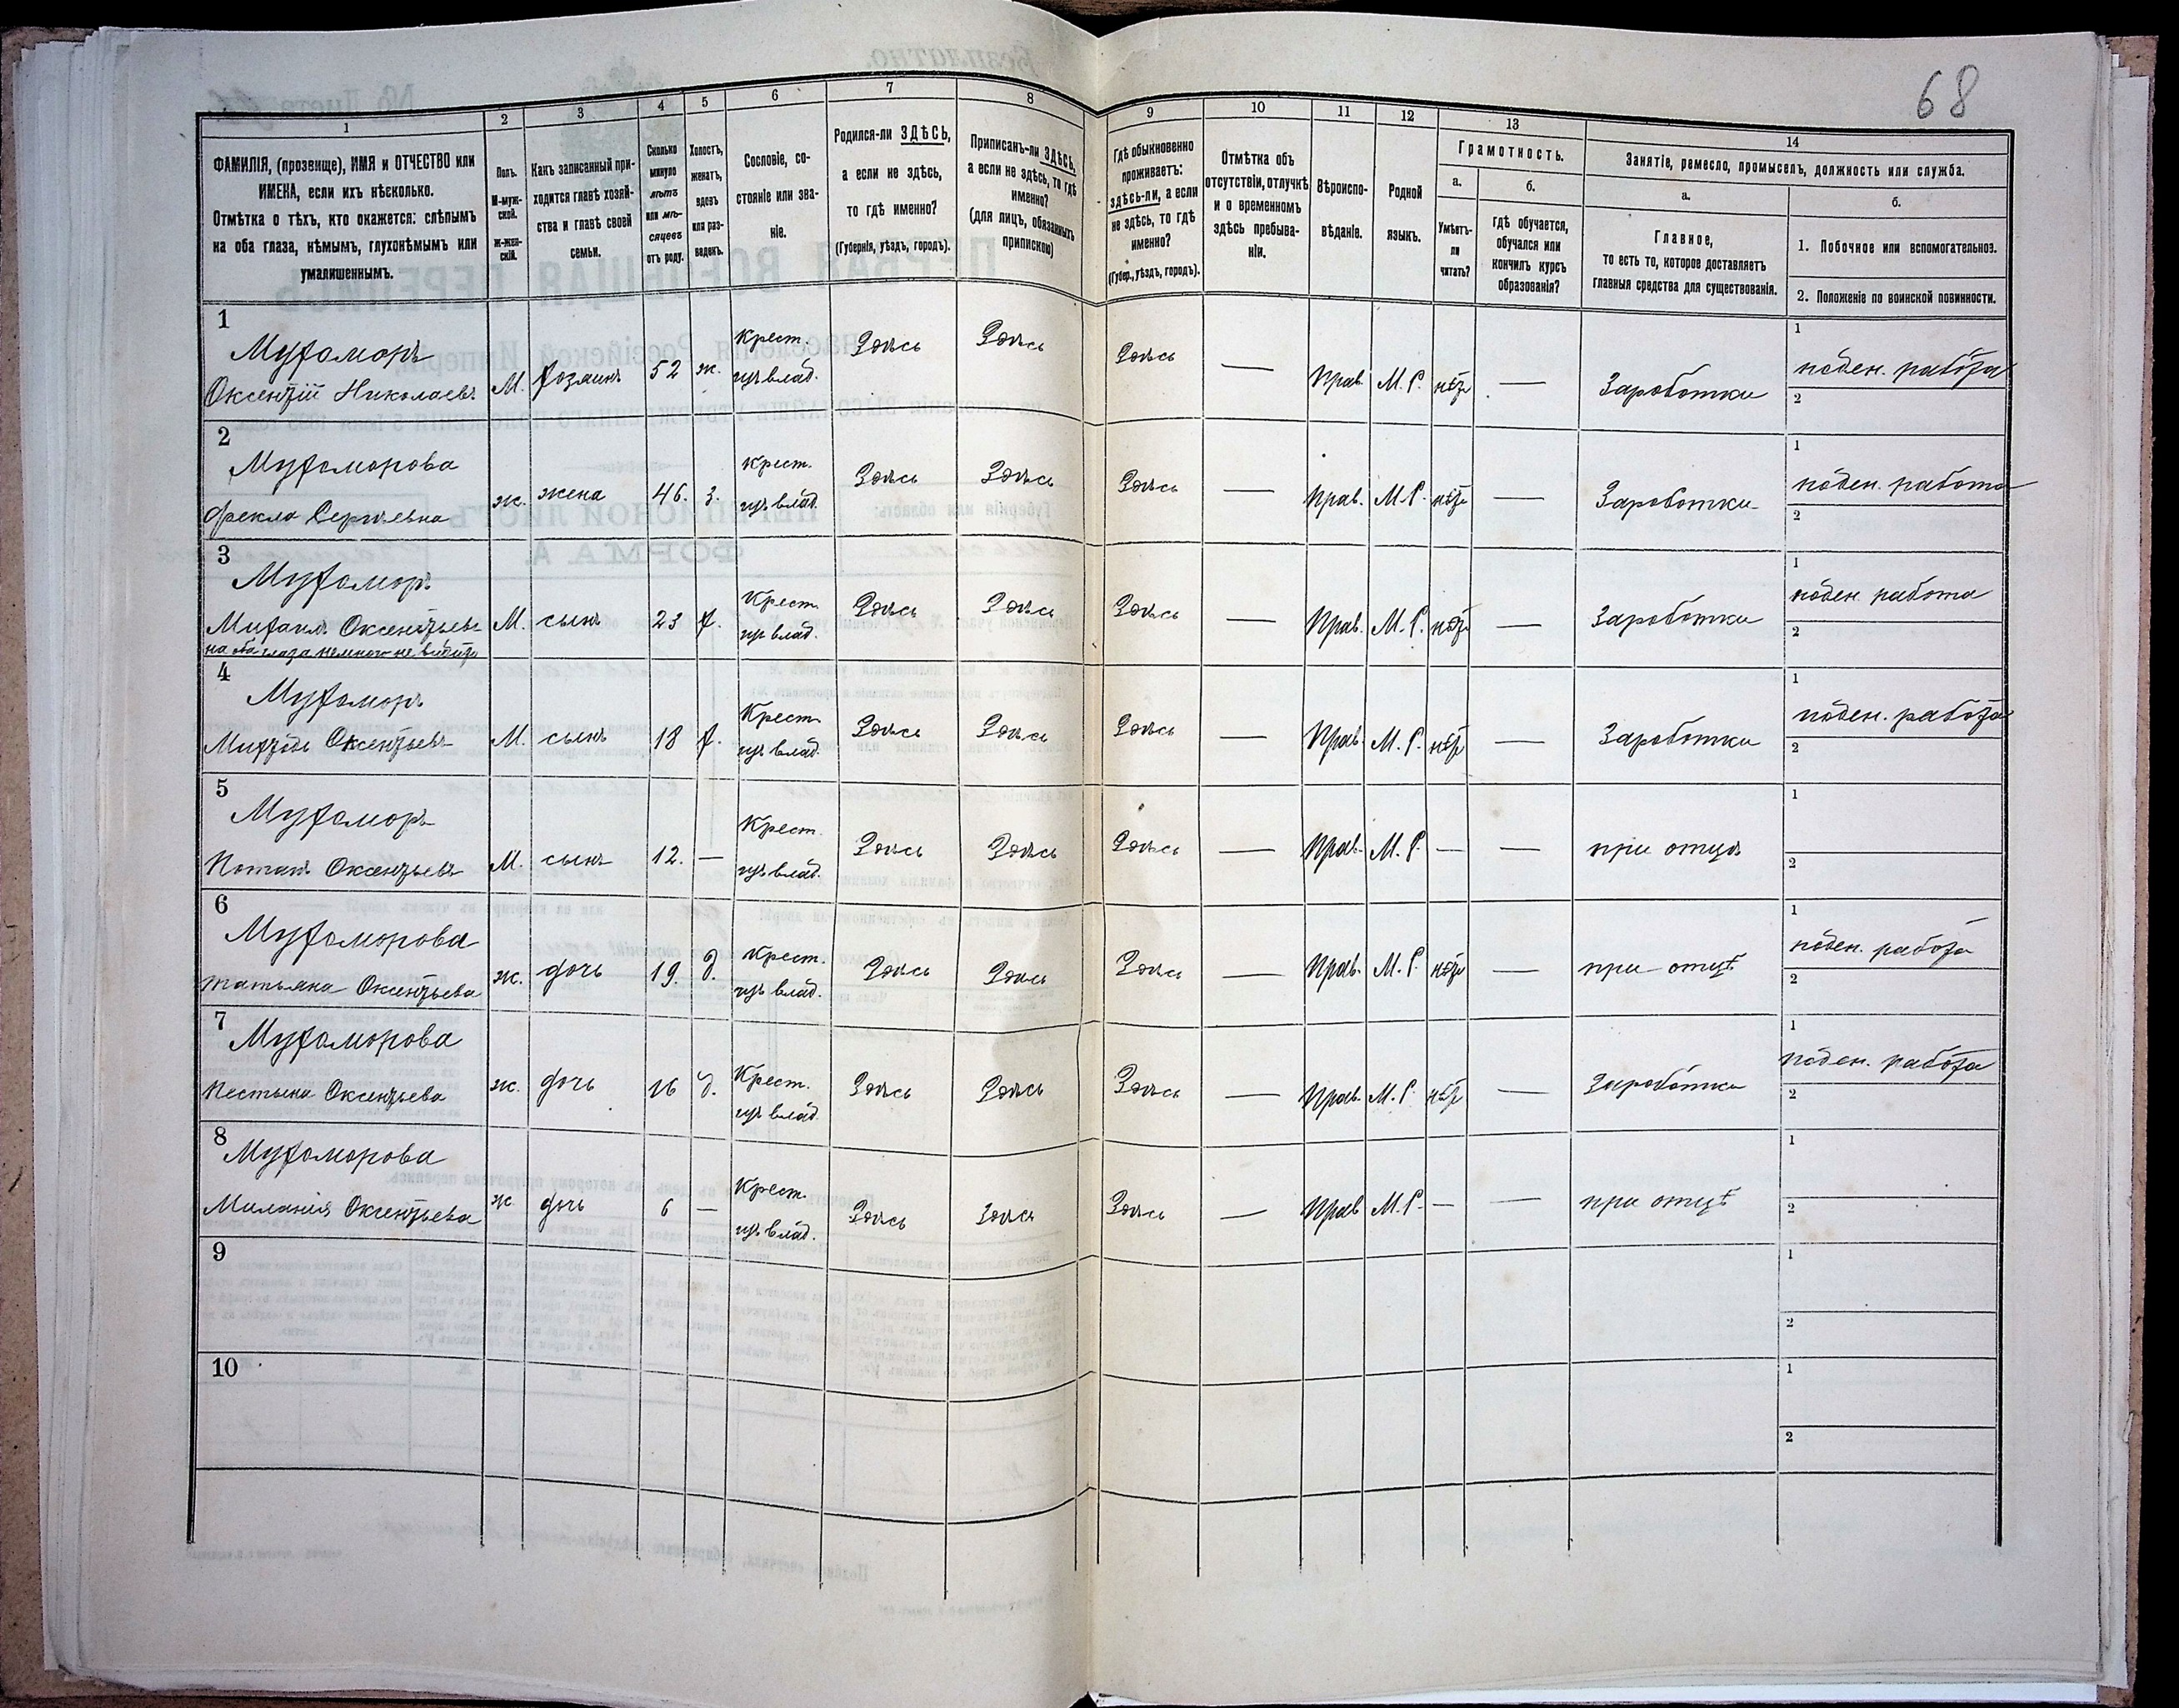 68
1
2
3
4
5
6
7
8
9
10
11
12
13
14
ФАМИЛІЯ, (прозвище), ИМЯ и ОТЧЕСТВО или
ИМЕНА, если ихъ нѣсколько.
Отмѣтка о тѣхъ, кто окажется: слѣпымъ
на оба глаза, нѣмымъ, глухонѣмымъ или
умалишеннымъ.
Полъ.
М-муж-
ской.
Ж-жен-
скій.
Какъ записанный при-
ходится главѣ хозяй-
ства и главѣ своей
семьи.
Сколько
минуло
лѣтъ
или мѣ-
сяцевъ
отъ роду.
Холостъ,
женатъ,
вдовъ
или раз-
веденъ.
Сословіе, со-
стояніе или зва-
ніе.
Родился-ли ЗДѢСЬ,
а если не здѣсь,
то гдѣ именно?
(Губернія, уѣздъ, городъ).
Приписанъ-ли ЗДѢСЬ,
а если не здѣсь, то гдѣ
именно?
(для лицъ, обязанныхъ
припискою)
Гдѣ обыкновенно
проживаетъ:
здѣсь-ли, а если
не здѣсь, то гдѣ
именно?
(Губер., уѣздъ, городъ).
Отмѣтка объ
отсутствіи, отлучкѣ
и о временномъ
здѣсь пребыва-
ніи.
Вѣроиспо-
вѣданіе.
Родной
языкъ.
Грамотность.
а.
Умѣетъ-
ли
читать?
б.
Гдѣ обучается,
обучался или
кончилъ курсъ
образованія?
Занятіе, ремесло, промыселъ, должность или служба.
а.
Главное,
то есть то, которое доставляетъ
главныя средства для существованія.
б.
1. Побочное или вспомогательное.
2. Положеніе по воинской повинности.
1
Мухоморъ
Оксентій Николаевъ
М. хозяинъ 52 ж. Крест.
изъ влад.
Здѣсь Здѣсь Здѣсь — Прав. М.Р. нѣтъ — Заработки
1 поден. работа
2
2
Мухоморова
Фекла Сергѣевна
ж. жена 46. з. Крест.
изъ влад.
Здѣсь Здѣсь Здѣсь — Прав. М.Р. нѣтъ — Заработки
1 поден. работа
2
3
Мухоморъ
Михаилъ Оксентьевъ
на оба глаза немного не видитъ
М. сынъ 23 х. Крест.
изъ влад.
Здѣсь Здѣсь Здѣсь — Прав. М.Р. нѣтъ — Заработки
1 поден. работа
2
4
Мухоморъ
Оксентьевъ
М. сынъ 18 х. Крест.
изъ влад.
Здѣсь Здѣсь Здѣсь — Прав. М.Р. нѣтъ — Заработки
1 поден. работа
2
5
Мухоморъ
Потапъ Оксентьевъ
М. сынъ 12. — Крест.
изъ влад.
Здѣсь Здѣсь Здѣсь — Прав. М.Р. — — при отцѣ
1
2
6
Мухоморова
Татьяна Оксентьева
ж. дочь 19. д. Крест.
изъ влад.
Здѣсь Здѣсь Здѣсь — Прав. М.Р. нѣтъ — при отцѣ
1 поден. работа
2
7
Мухоморова
Оксентьева
ж. дочь 16 д. Крест.
изъ влад.
Здѣсь Здѣсь Здѣсь — Прав. М.Р. нѣтъ — Заработки
1 поден. работа
2
8
Мухоморова
Миланія Оксентьева
ж дочь 6 — Крест.
изъ влад.
Здѣсь Здѣсь Здѣсь — Прав М.Р. — — при отцѣ
1
2
9
1
2
10
1
2